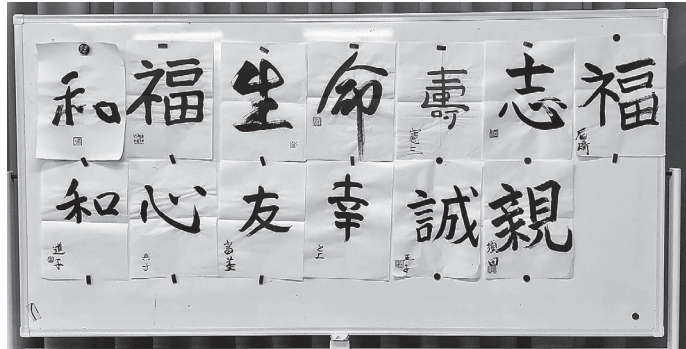 和 福 生 命 壽 志 福
和 心 友 幸 誠 親
道子